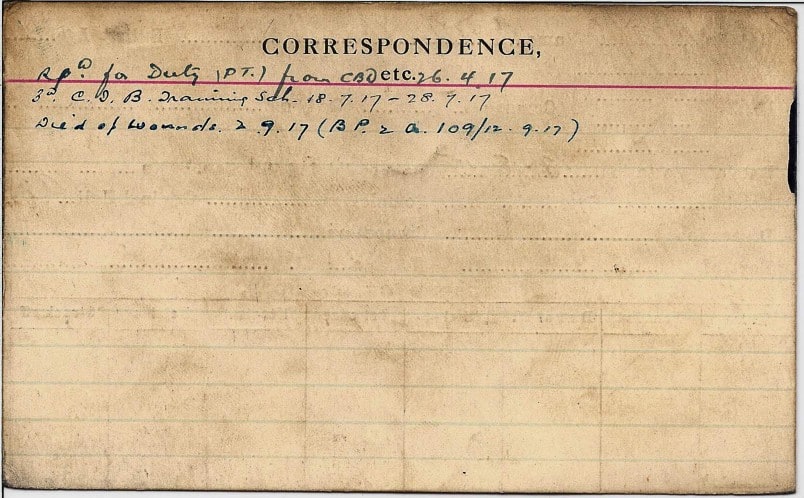 CORRESPONDENCE,
Rp^d for Duty (PT.) from CBD etc. 26. 4. 17
3^rd C. I. B. Training Sch. 18. 7. 17 – 28. 7. 17
Died of wounds. 2. 9. 17 (B P. 2 a. 109/12. 9. 17)